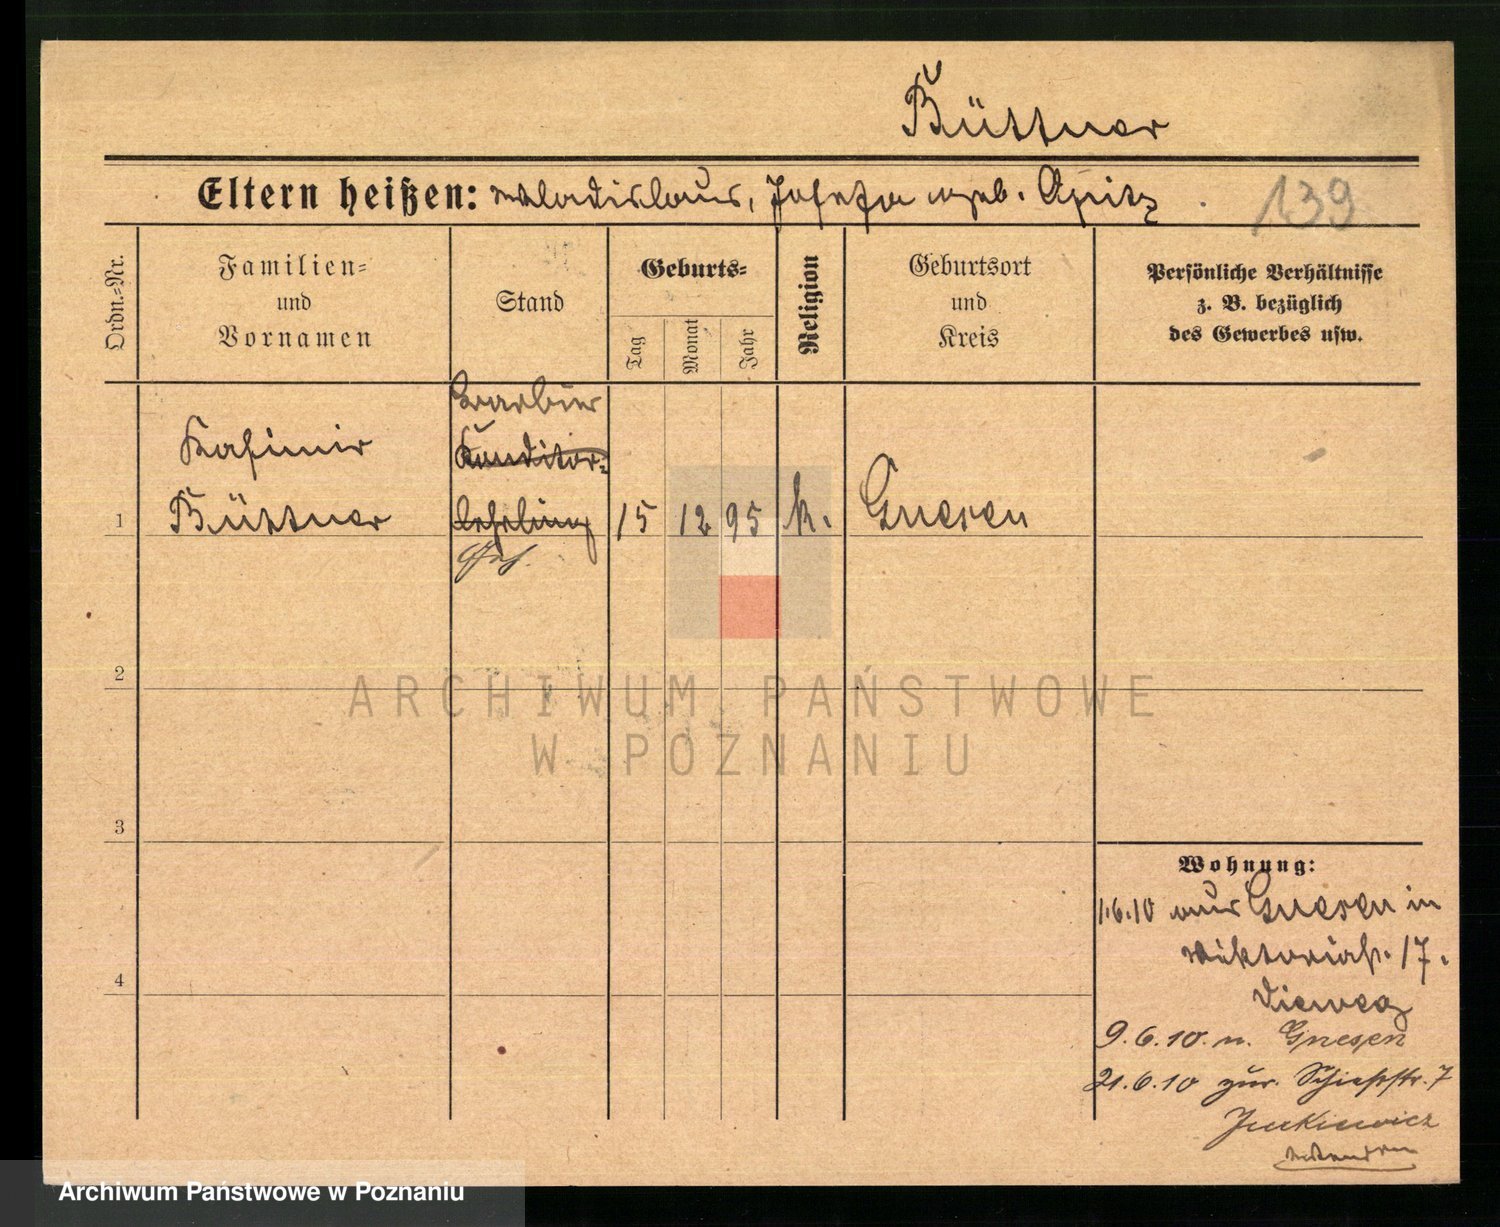 Büttner
Eltern heißen: Wladislaus, Josefa geb. Apitz
139
Ordn.=Nr.
Familien=
und
Vornamen
Stand
Geburts=
Tag
Monat
Jahr
Religion
Geburtsort
und
Kreis
Persönliche Verhältnisse
z. B. bezüglich
des Gewerbes usw.
Barbier
Kasimir
Konditor=
1 Büttner lehrling 15 12 95 k. Gnesen
2
ARCHIWUM PAŃSTWOWE
W POZNANIU
3
4
Wohnung:
1.6.10 aus Gnesen in
Viktoriastr. 17.
9.6.10. n. Gnesen
21.6.10 zur. Schießstr. 7
Archiwum Państwowe w Poznaniu